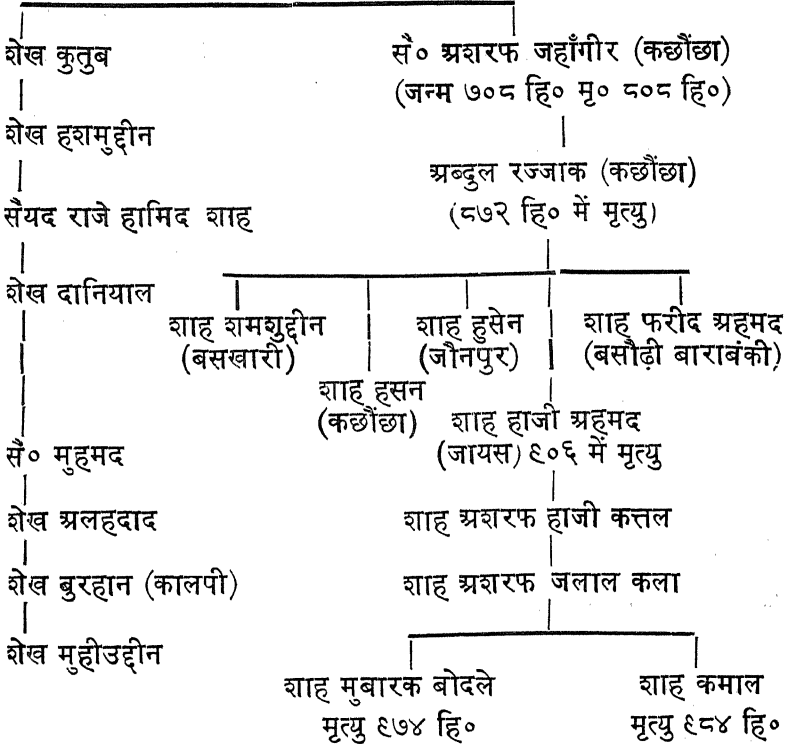 शेख कुतुब
शेख हशमुद्दीन
सैयद राजे हामिद शाह
शेख दानियाल
सै० मुहमद
शेख अलहदाद
शेख बुरहान (कालपी)
शेख मुहीउद्दीन
सै० अशरफ जहाँगीर (कछौंछा)
(जन्म ७०८ हि० मृ० ८०८ हि०)
अब्दुल रज्जाक (कछौंछा)
(८७२ हि० में मृत्यु)
शाह शमशुद्दीन
(बसखारी)
शाह हसन
(कछौंछा)
शाह हुसेन
(जौनपुर)
शाह फरीद अहमद
(बसौढ़ी बाराबंकी)
शाह हाजी अहमद
(जायस) ९०६ में मृत्यु
शाह अशरफ हाजी कत्तल
शाह अशरफ जलाल कला
शाह मुबारक बोदले
मृत्यु ९७४ हि०
शाह कमाल
मृत्यु ९८४ हि०